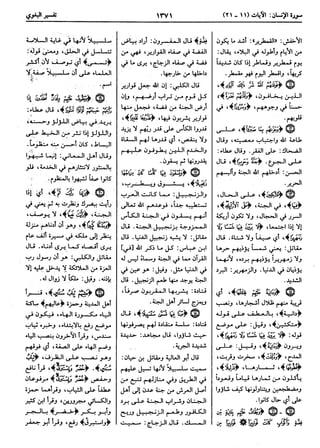 سورة الإنسان: الآيات (١١ - ٢١) ١٣٧١ تفسير البغوي
الأخفش: القمطرير: أشد ما يكون
من الأيام وأطوله في البلاء، يقال:
يوم قمطرير وقماطر إذا كان شديدًا
كريهًا، واقمطر اليوم فهو مقمطر.
الذين يخافون،
حسنًا في وجوههم،
قلوبهم.
على
طاعة الله واجتناب معصيته، وقال
الضحاك: على الفقر. وقال عطاء:
على الجوع.
الحسن: أدخلهم الله الجنة وألبسهم
الحرير.
على الحال،
في الجنة،
السرر في الحجال، ولا تكون أريكة
إلا إذا اجتمعا،
أي صيفًا ولا شتاء. قال
مقاتل: يعني شمسًا يؤذيهم حرها
ولا زمهريرًا يؤذيهم برده، لأنهما
يؤذيان في الدنيا. والزمهرير: البرد
الشديد.
قريبة منهم ظلال أشجارها، ونصب
بالعطف على قوله
وقيل: على موضع
وقيل: على
المدح،
سخرت وقربت،
ثمارها،
يأكلون من ثمارها قيامًا وقعودًا
ومضطجعين ويتناولونها كيف شاؤوا
على أي حال كانوا.
قال المفسرون: أراد بياض
الفضة في صفاء القوارير، فهي من
فضة في صفاء الزجاج، يرى ما في
داخلها من خارجها.
قال الكلبي: إن الله جعل قوارير
كل قوم من تراب أرضهم، وإن
أرض الجنة من فضة، فجعل منها
قوارير يشربون فيها،
قدروا الكأس على قدر ريهم لا يزيد
ولا ينقص، أي قدرها لهم السقاة
والخدم الذين يطوفون عليهم
يقدرونها ثم يسقون.
يشوق ويطرب،
والزنجبيل: مما كانت العرب
تستطيبه جدًا، فوعدهم الله تعالى
أنهم يسقون في الجنة الكأس
الممزوجة بزنجبيل الجنة. قال
مقاتل: لا يشبه زنجبيل الدنيا. قال
ابن عباس: كل ما ذكر الله في
القرآن مما في الجنة وسماه ليس له
في الدنيا مثل. وقيل: هو عين في
الجنة يوجد منها طعم الزنجبيل. قال
قتادة: يشربها المقربون صرفًا،
ويمزج لسائر أهل الجنة.
قال
قتادة: سلسة منقادة لهم يصرفونها
حيث شاؤوا، وقال مجاهد: حديدة
شديدة الجرية.
قال أبو العالية ومقاتل بن حيان:
سميت سلسبيلًا لأنها تسيل عليهم
في الطريق وفي منازلهم تنبع من
أصل العرش من جنة عدن إلى أهل
الجنان وشراب الجنة على برد
الكافور وطعم الزنجبيل وريح
المسك. قال الزجاج: سميت
سلسبيلًا لأنها في غاية السلاسة
تتسلسل في الحلق، ومعنى قوله:
أي توصف لأن أكثر
العلماء على أن سلسبيلًا صفة لا
اسم.
قال عطاء:
يريد في بياض اللؤلؤ وحسنه،
واللؤلؤ إذا نثر من الخيط على
البساط، كان أحسن منه منظومًا.
وقال أهل المعاني: إنما شبهوا
بالمنثور لانتثارهم في الخدمة، فلو
كانوا صفًا لشبهوا بالمنظوم.
أي إذا
رأيت ببصرك ونظرت به ثم يعني في
الجنة،
لا يوصف،
وهو أن أدناهم منزلة
ينظر إلى ملكه في مسيرة ألف عام
يرى أقصاه كما يرى أدناه. قال
مقاتل والكلبي: هو أن رسول رب
العزة من الملائكة لا يدخل عليه إلا
بإذنه. وقيل: ملكًا لا زوال له.
قرأ
أهل المدينة وحمزة ساكنة
الياء مكسورة الهاء، فيكون في
موضع رفع بالابتداء، وخبره ثياب
سندس، وقرأ الآخرون بنصب الياء
وضم الهاء على الصفة، أي فوقهم
وهو نصب على الظرف،
قرأ نافع
وحفص مرفوعان
عطفًا على الثياب، وقرأهما حمزة
والكسائي مجرورين، وقرأ ابن كثير
وأبو بكر بالجر
رفع، وقرأ أبو جعفر